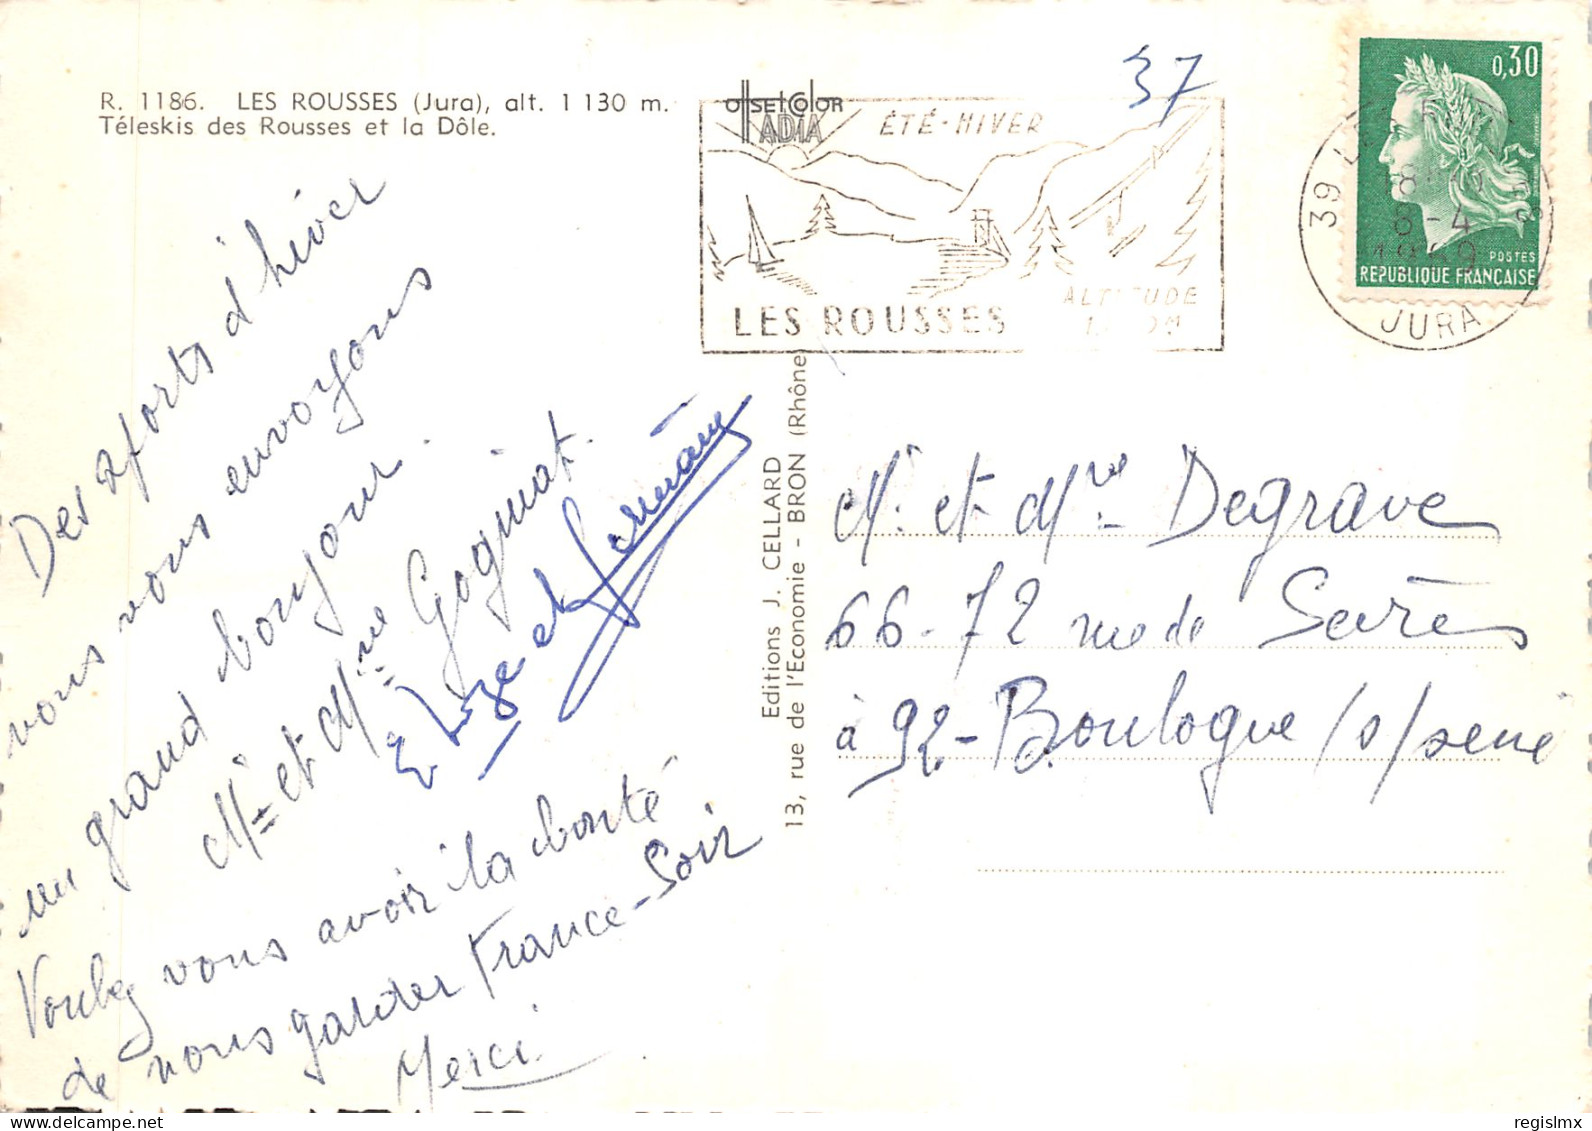 R. 1186. LES ROUSSES (Jura), alt. 1 130 m.
Téleskis des Rousses et la Dôle.
OFFSET COLOR
ADIA
ÉTÉ-HIVER
ALTITUDE
LES ROUSSES
37
0,30
POSTES
REPUBLIQUE FRANÇAISE
39 LES ROUSSES
8-4
1969
JURA
Des sports d'hiver
nous vous envoyons
un grand bonjour.
Mr et Mme Goguniat.
Elize et Germain
Voulez vous avoir la bonté
de nous garder France-Soir
Merci
Editions J. CELLARD
13, rue de l'Economie - BRON (Rhône)
Mr et Mme Degrave
66-72 rue de Sèvres
à 92-Boulogne/s/seine
regislmx